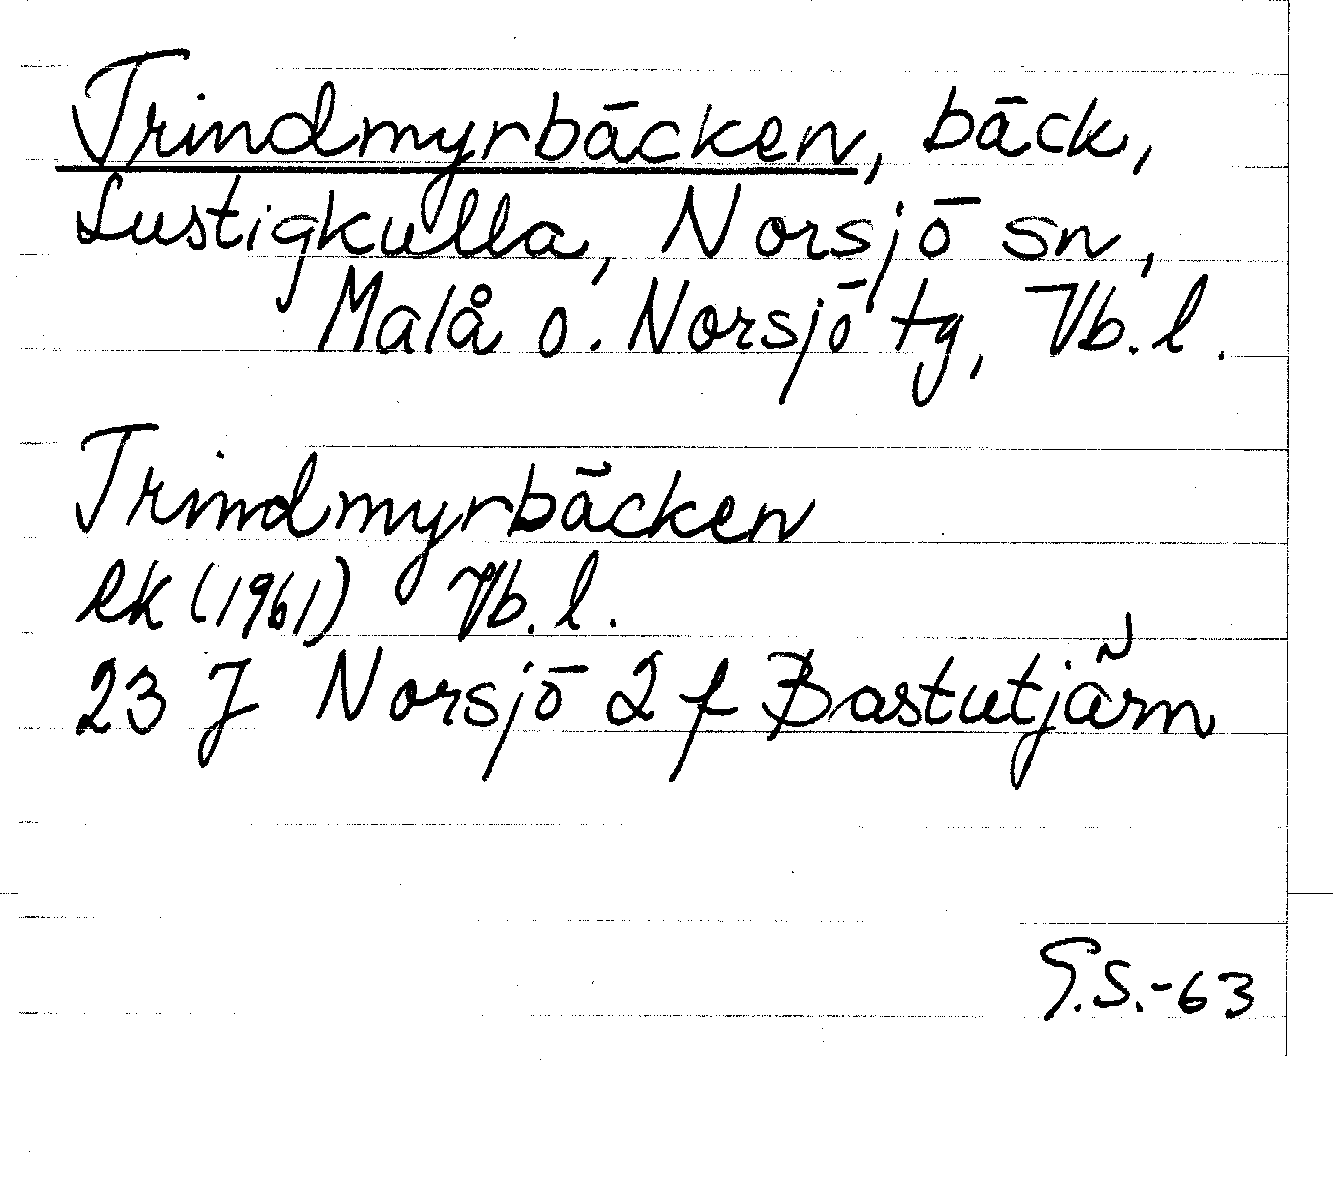 Trindmyrbäcken, bäck,
Lustigkulla, Norsjö sn,
Malå o. Norsjö tg, Vb. l.
Trindmyrbäcken
ek (1961) Vb. l.
23 J Norsjö 2 f Bastutjärn
G.S.-63